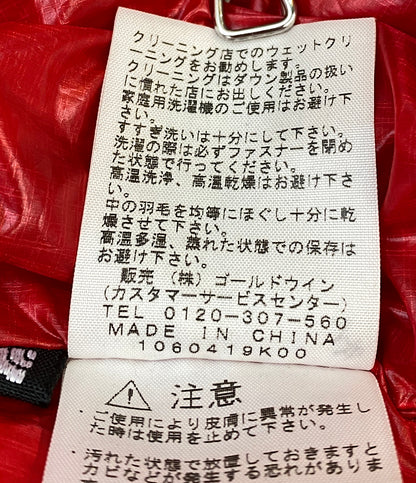 クリーニング店でのウェットクリ
ーニングをお勧めします。
クリーニングはダウン製品の扱い
に慣れた店にお出しください。
家庭用洗濯機のご使用はお避け下
さい。
すすぎ洗いは十分にして下さい。
洗濯の際は必ずファスナーを閉め
た状態で行ってください。
高温洗浄、高温乾燥はお避け下さ
い。
中の羽毛を均等にほぐし十分に乾
燥させて下さい。
高温多湿、蒸れた状態での保存は
お避け下さい。
販売 (株) ゴールドウイン
(カスタマーサービスセンター)
TEL 0120-307-560
MADE IN CHINA
1060419K00
注意
・ご使用により皮膚に異常が発生し
た時は使用を止めて下さい。
・汚れた状態で放置しておきますと
カビなどが発生する恐れがありま